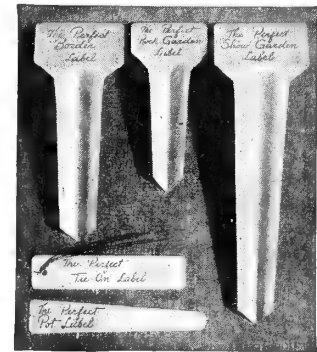 The Perfect
Border
Label
The Perfect
Rock Garden
Label
The "Perfect
Show Garden
Label
The "Perfect"
Tie-On Label
The Perfect
Pot Label